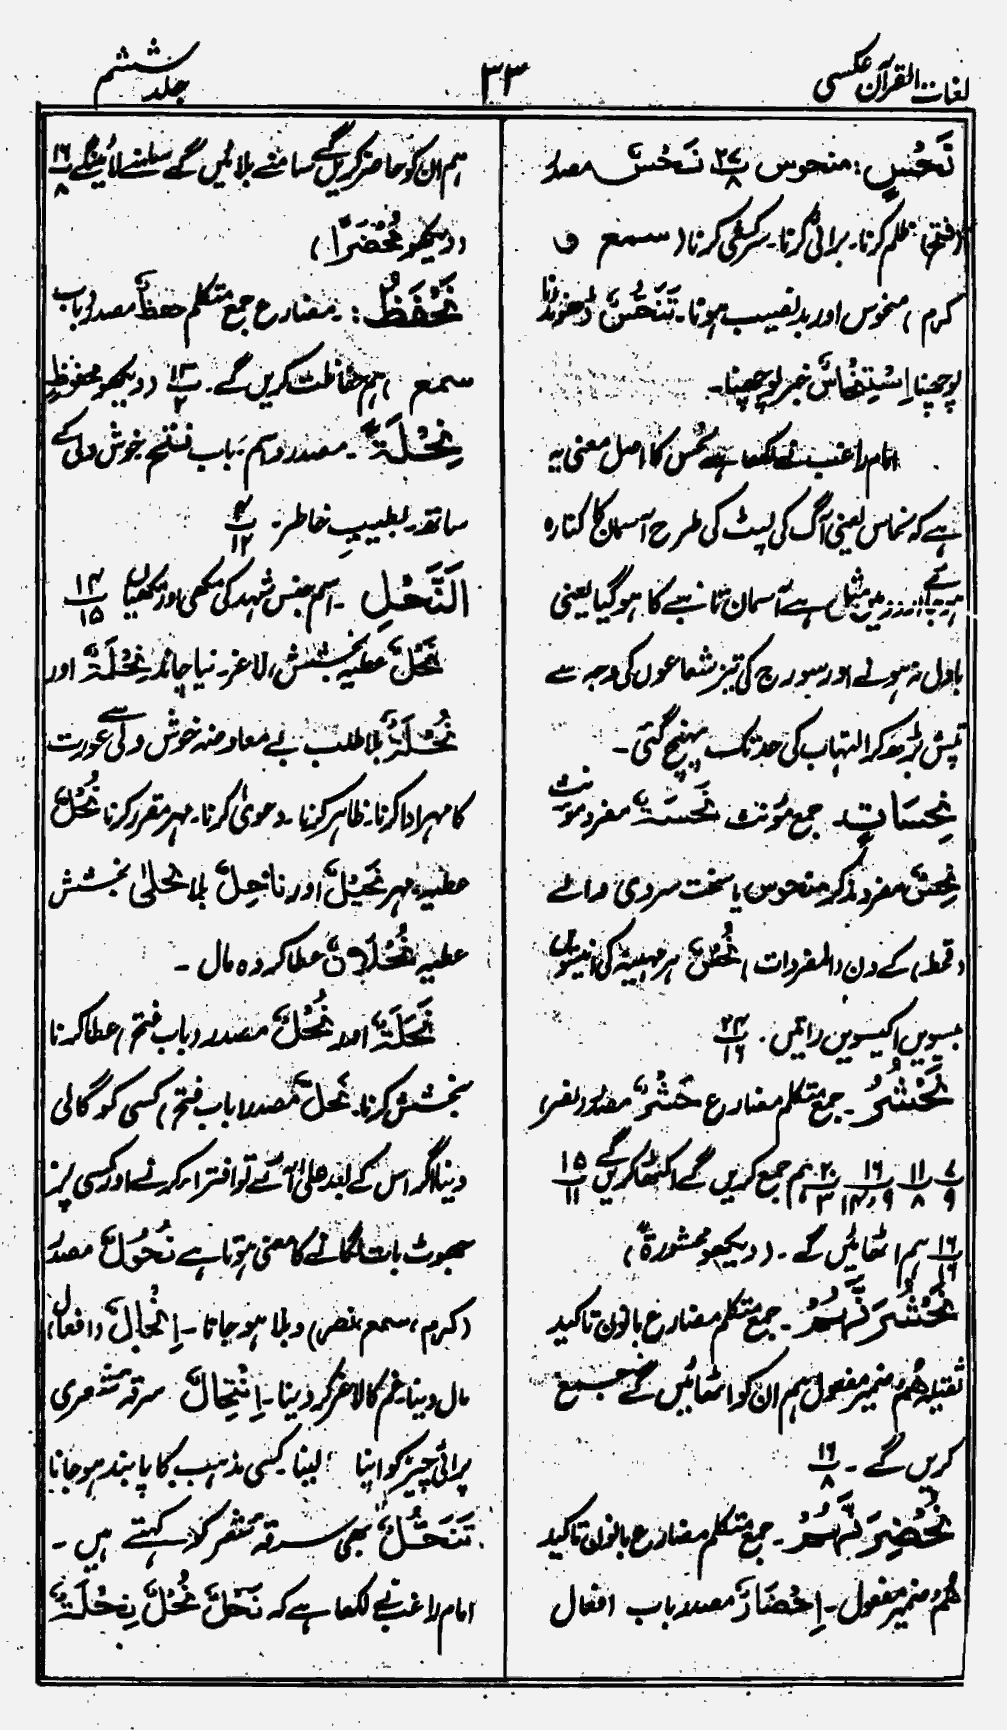 لغات القرآن عکسی
۳۳
جلد ششم
نَحْسٍ: منحوس ۲۷/۸ نَحْسٌ مصدر
(فتح) ظلم کرنا۔ برائی کرنا۔ سرکشی کرنا (سمع و
کرم) منحوس اور بدنصیب ہونا۔ تَنَحُّسٌ ڈھونڈنا
پوچھنا اِسْتِنْحَاسٌ خبر پوچھنا۔
امام راغب نے لکھا ہے نحس کا اصل معنی یہ
ہے کہ نحاس یعنی آگ کی لپٹ کی طرح آسمان کا کنارہ
ہوجائے زمین مثل ہے آسمان تانبے کا ہوگیا یعنی
بادل نہ ہونے اور سورج کی تیز شعاعوں کی وجہ سے
تپش بڑھ کر التہاب کی حد تک پہنچ گئی۔
نَحِسَاتٍ جمع مؤنث نَحِسَةٌ مفرد مؤنث
نَحِسٌ مفرد مذکر منحوس یا سخت سردی والے
(قحط) کے دن (المفردات) نُحُسٌ ہر مہینہ کی انیسویں
بیسویں اکیسویں راتیں۔ ۲۴/۱۶
نَحْشُرُ۔ جمع متکلم مضارع حَشْرٌ مصدر (نصر)
۷/۹ ۱۱/۸ ۱۶/۱۴،۹ ۲۰/۳ ہم جمع کریں گے اکٹھا کریں گے ۱۵/۱۱
۱۶/۱۶ ہم اٹھائیں گے۔ (دیکھو محشورة)
نَحْشُرَنَّهُمْ۔ جمع متکلم مضارع بانون تاکید
ثقیلہ هُمْ ضمیر مفعول ہم ان کو اٹھائیں گے جمع
کریں گے۔ ۱۶/۸
نُحْضِرَنَّهُمْ۔ جمع متکلم مضارع بانون تاکید
هُمْ ضمیر مفعول۔ اِحْضَارٌ مصدر باب افعال
ہم ان کو حاضر کریں گے سامنے بلائیں گے سامنے لائینگے ۱۶/۸
(دیکھو مُحْضَرًا)
نَحْفَظُ:۔ مضارع جمع متکلم حفظٌ مصدر (باب
سمع) ہم حفاظت کریں گے۔ ۱۳/۲ (دیکھو محفوظ
نِحْلَةً۔ مصدر واسم۔ باب فتح خوش دلی کے
ساتھ۔ بطیب خاطر۔ ۴/۱۲
اَلنَّحْلِ۔ اسم جنس شہد کی مکھی اور مکھیاں ۱۴/۱۵
نَحْلٌ عطیہ بخشش، لاغر۔ نیا چاند نِحْلَةٌ اور
نُحْلَةٌ بلا طلب بے معاوضہ خوش دلی سے عورت
کا مہر ادا کرنا۔ ظاہر کرنا۔ دعویٰ کرنا۔ مہر مقرر کرنا نُحْلٌ
عطیہ، مہر نَحِیْلٌ اور نَاحِلٌ بلا نحلیٰ بخشش
عطیہ نُحْلَانٌ عطا کردہ مال۔
نَحْلَةٌ اور نُحْلٌ مصدر (باب فتح) عطا کرنا
بخشش کرنا۔ نَحْلٌ مصدر (باب فتح) کسی کو گالی
دینا اگر اس کے بعد علیٰ آئے تو افترا کرنے اور کسی پر
جھوٹ بات لگانے کا معنی ہوتا ہے نُحُوْلٌ مصدر
(کرم، سمع، نصر) دبلا ہو جانا۔ اِنْحَالٌ (افعال)
مال دینا۔ غم کا لاغر کر دینا۔ اِنْتِحَالٌ سرقہ شعری
پرائی چیز کو اپنا لینا کسی مذہب کا پابند ہو جانا
تَنَحُّلٌ بھی سرقہ شعر کو کہتے ہیں۔
امام راغب نے لکھا ہے کہ نَحْلٌ نُحْلٌ نِحْلَةٌ